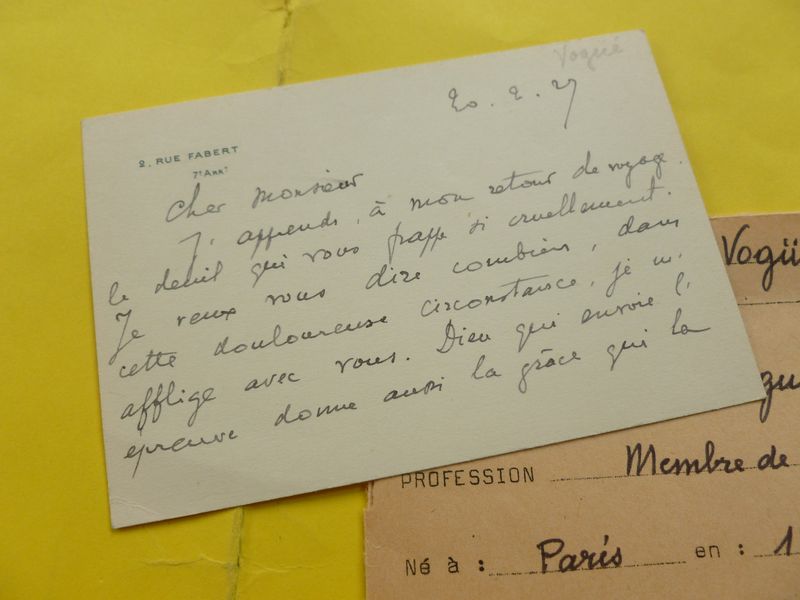 Vogüé
20.2.27
2, RUE FABERT
7e ARRt
Cher Monsieur
J'apprends, à mon retour de voyage
le deuil qui vous frappe si cruellement.
Je veux vous dire combien, dans
cette douloureuse circonstance, je m'
afflige avec vous. Dieu qui envoie l'
épreuve donne aussi la grâce qui la
Vogü
PROFESSION Membre de
Né à : Paris en : 1